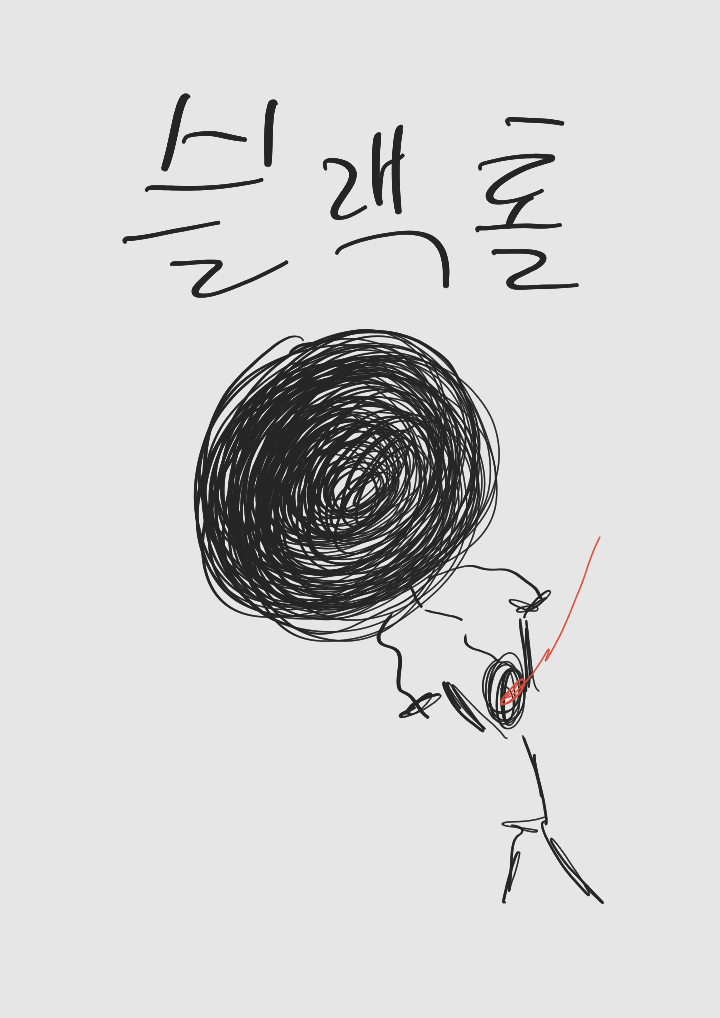 블랙홀